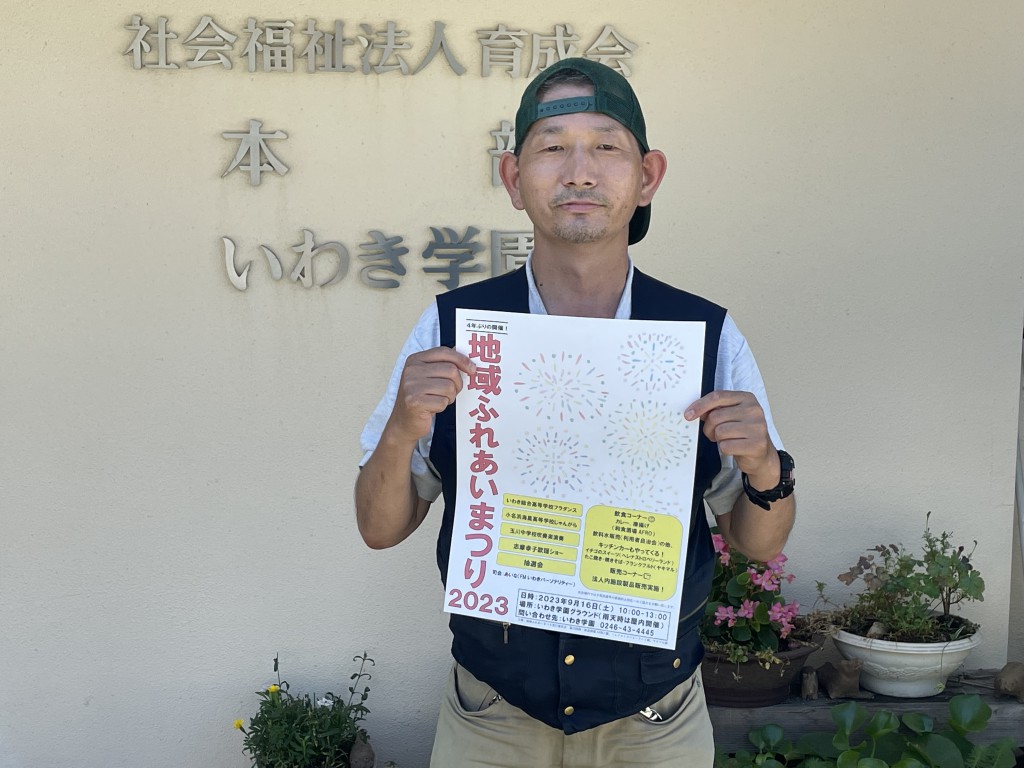 社会福祉法人育成会
本部
いわき学園
4年ぶりの開催！
地域ふれあいまつり
2023
いわき総合高等学校フラダンス
小名浜海星高等学校じゃんがら
玉川中学校吹奏楽演奏
志摩幸子歌謡ショー
抽選会
司会：あいな(FMいわきパーソナリティー)
飲食コーナー
カレー、唐揚げ
飲料水販売(利用者自治会)の他、
キッチンカーもやってくる！
イチゴのスイーツ(ヘレナストロベリーランド)
たこ焼き・焼きそば・フランクフルト(ヤキマル)
販売コーナー
法人内施設製品販売実施！
日時：2023年9月16日(土) 10:00-13:00
場所：いわき学園グラウンド(雨天時は屋内開催)
問い合わせ先：いわき学園 0246-43-4445